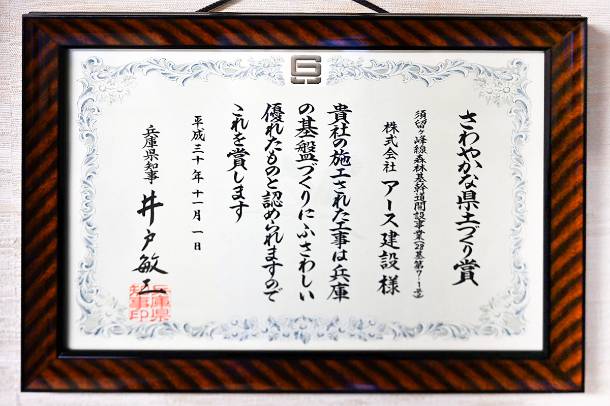 さわやかな県土づくり賞
須留ヶ峰線森林基幹道開設事業
株式会社 アース建設 様
貴社の施工された工事は兵庫
の基盤づくりにふさわしい
優れたものと認められますので
これを賞します
平成三十年十一月一日
兵庫県知事 井戸敏三
兵庫県
知事印